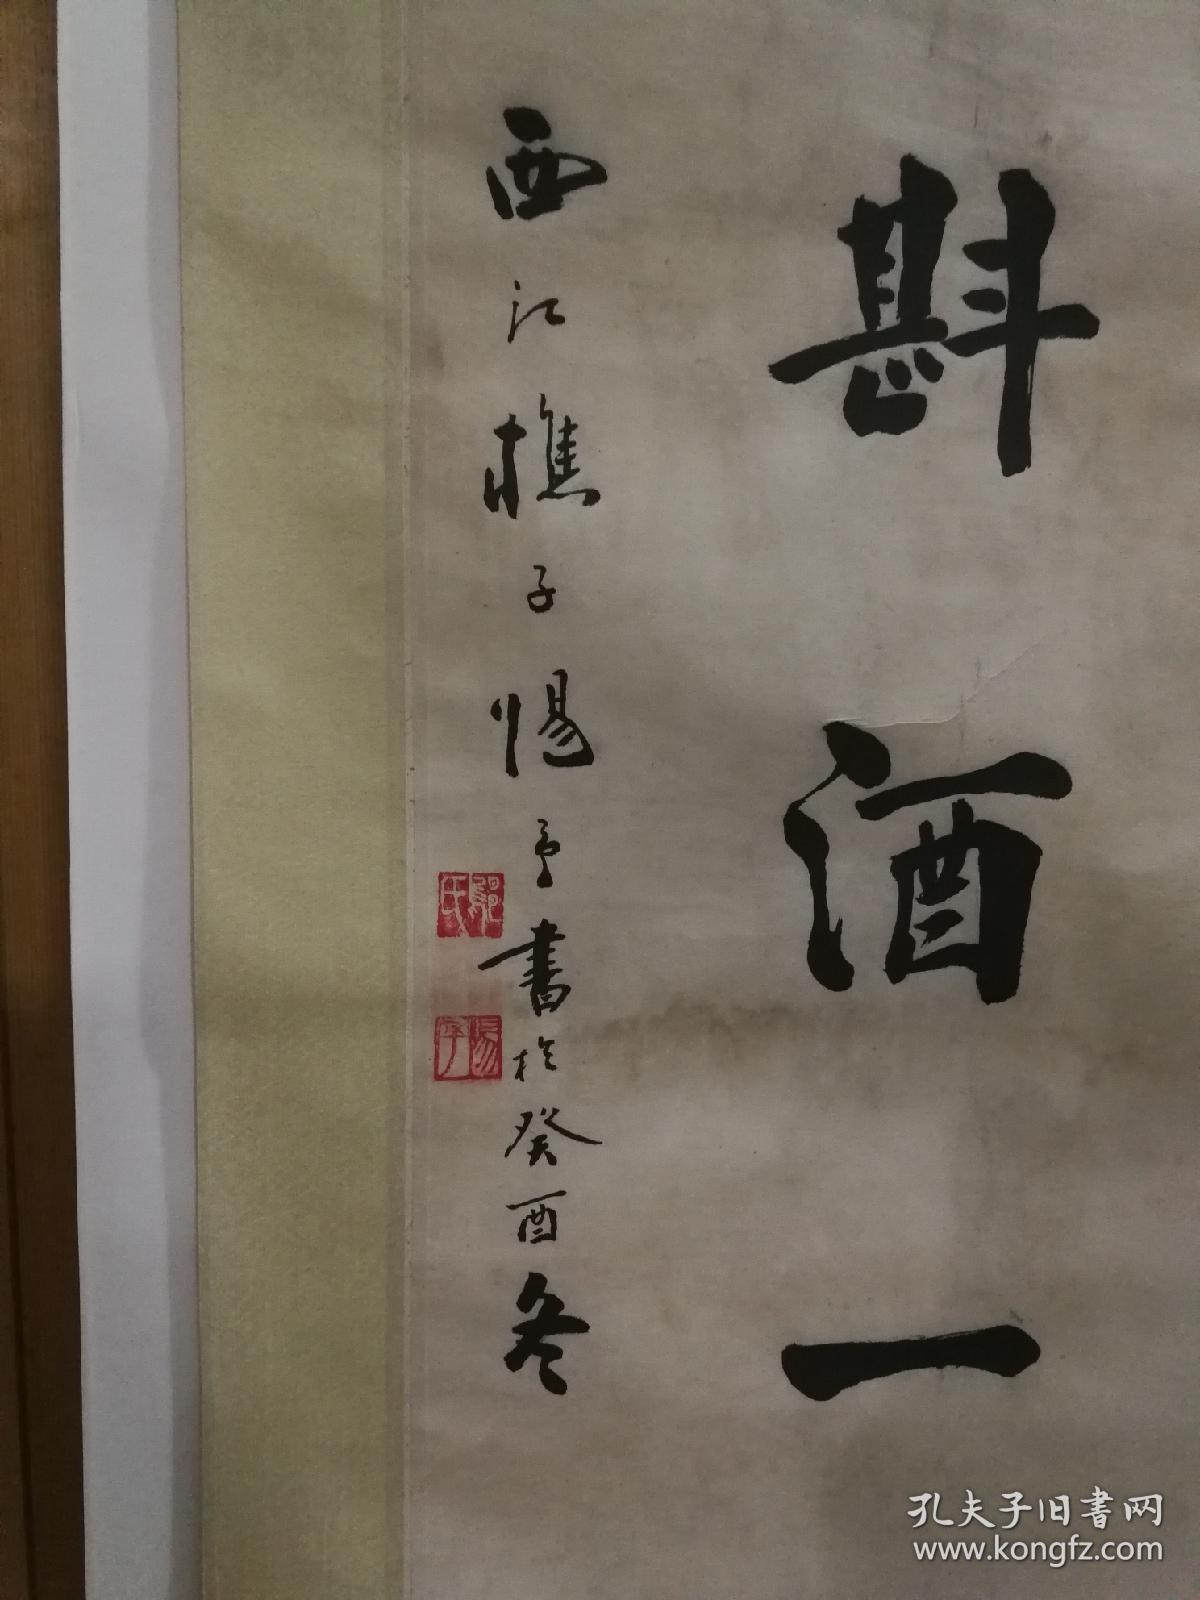 斟酒一
西江樵子惕予書於癸酉冬
孔夫子旧書网
www.kongfz.com